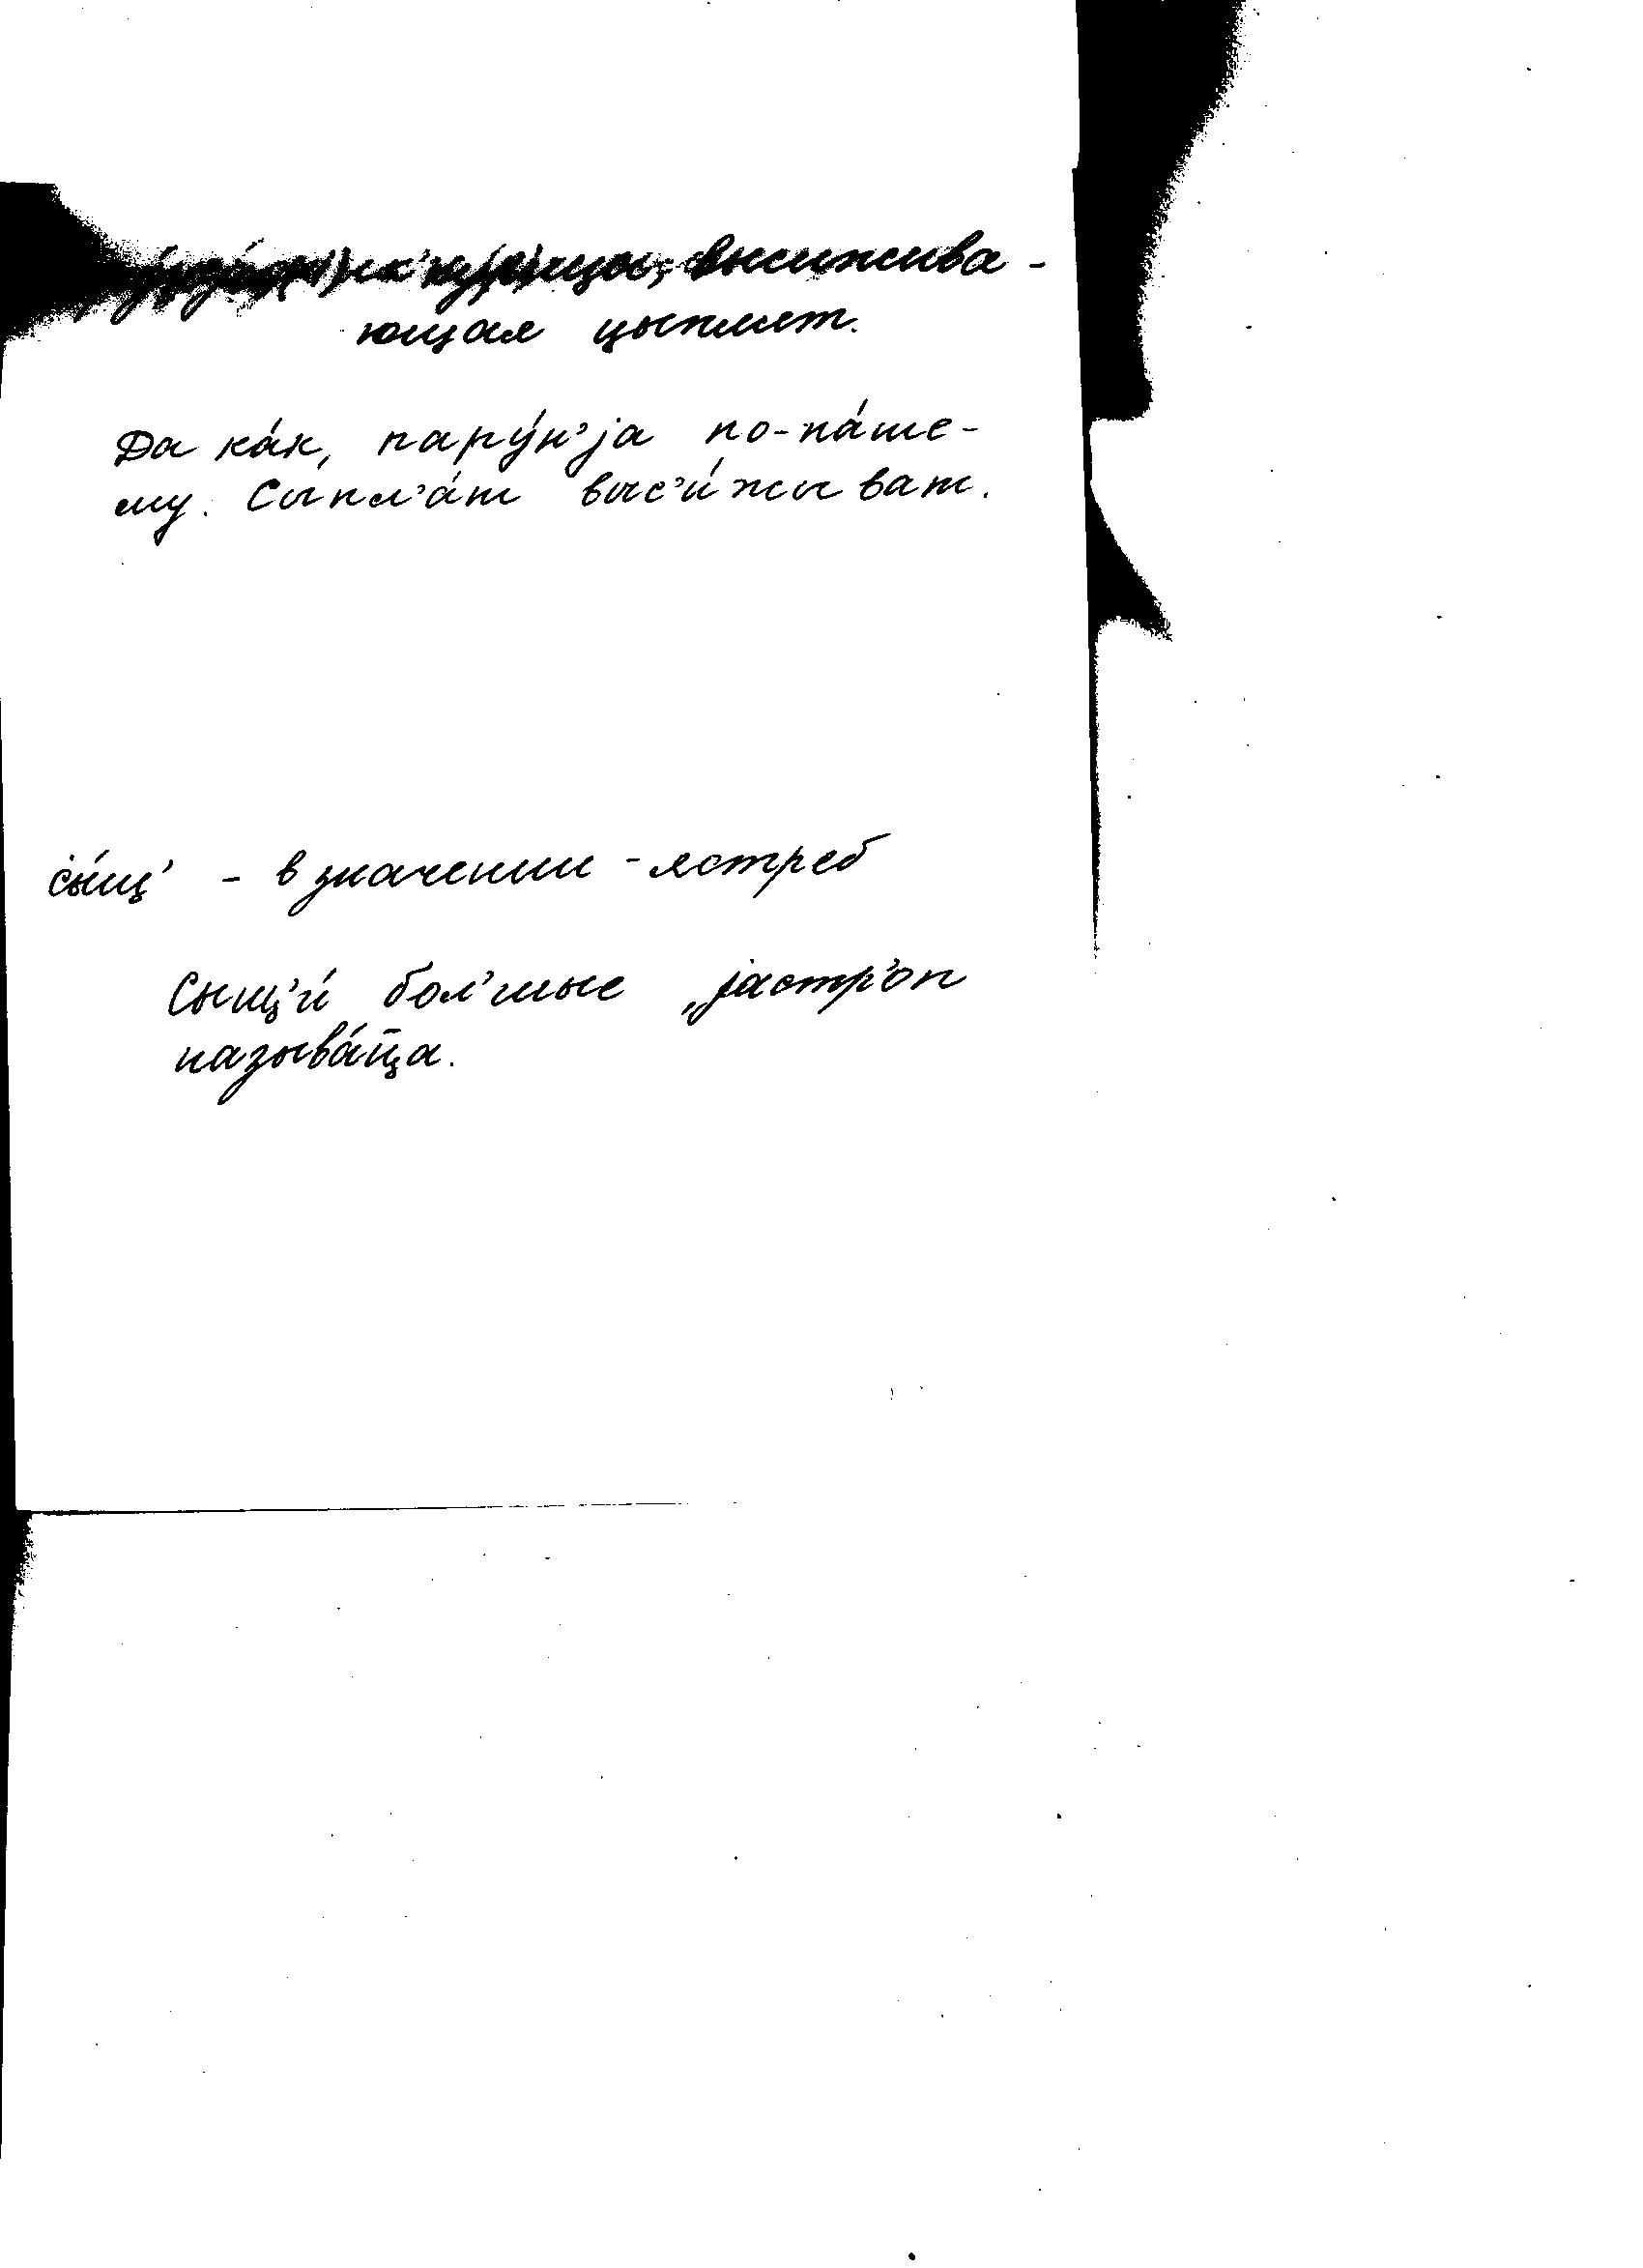 высижива-
ющая цыплят.
Да ка́к, пару́н'jа по-на́ше-
му. Сыпл'а́т выс'и́жыват.
сы́щ' - в значении - ястреб
Сыщ'и́ бол'шые „jастр'оп
называ́т̄ца.